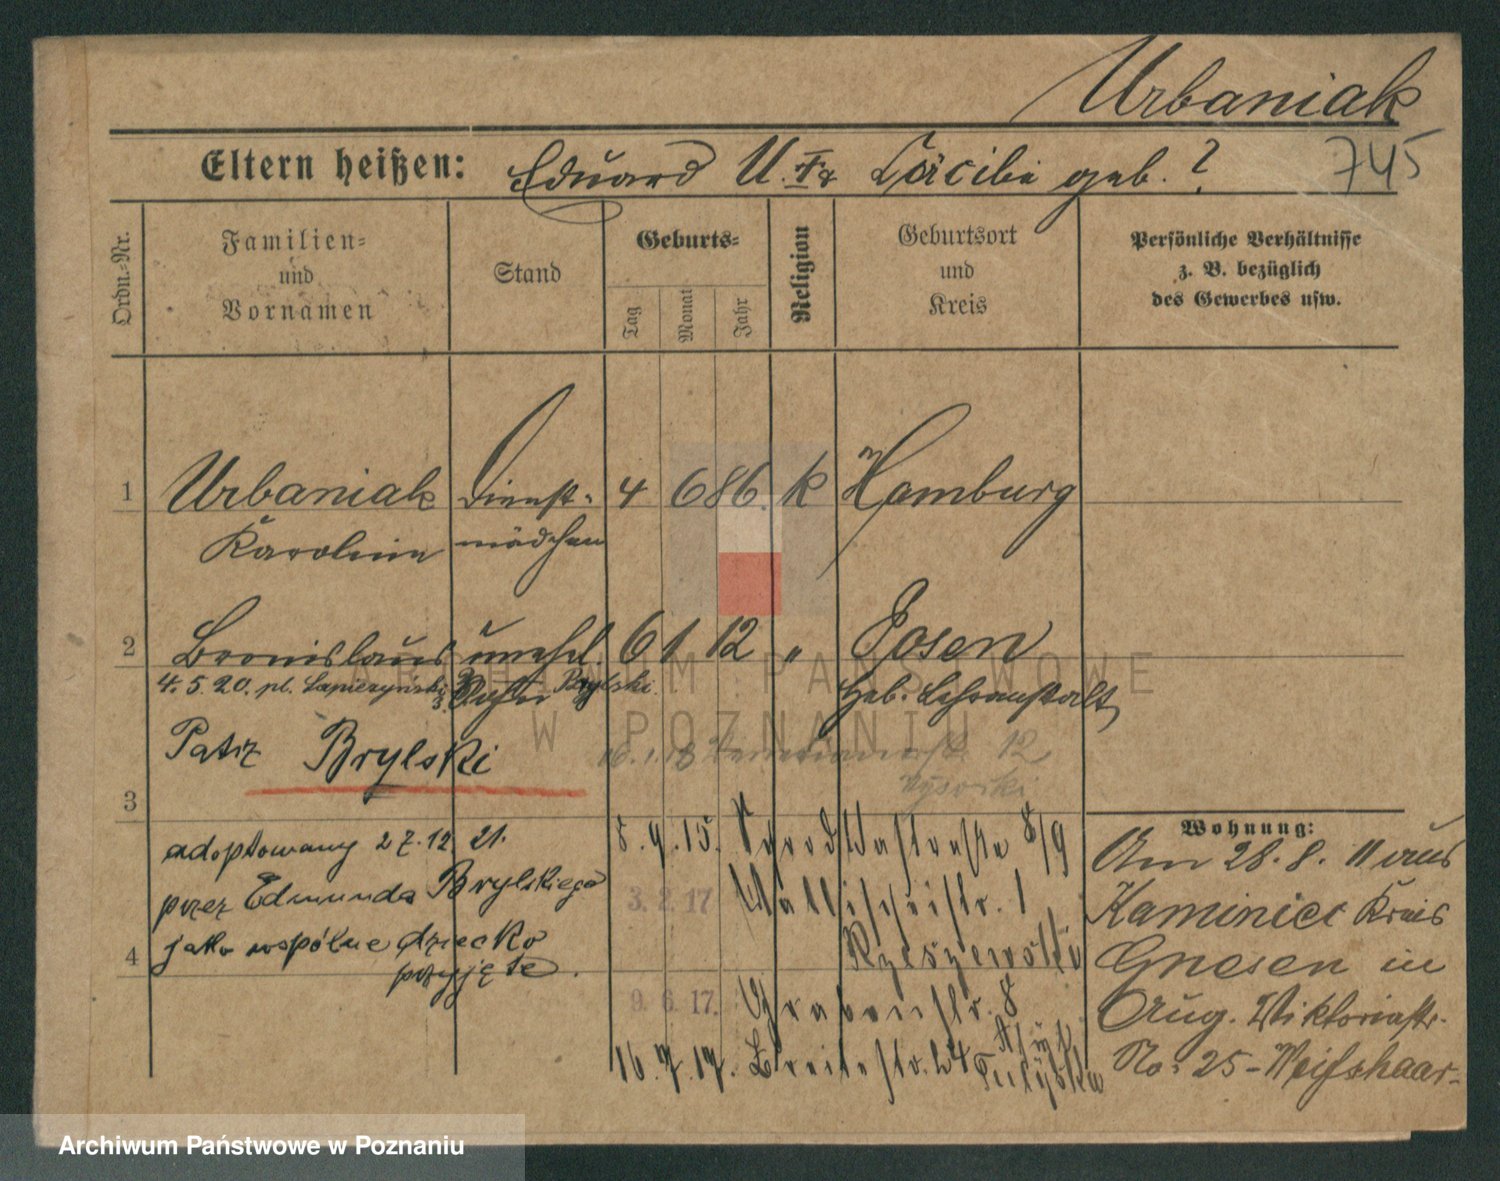 Urbaniak
745
Eltern heißen: Eduard U. Cäcilie geb. ?
Ordn.-Nr.
Familien- und Vornamen
Stand
Geburts-
Tag
Monat
Jahr
Religion
Geburtsort und Kreis
Persönliche Verhältnisse z. B. bezüglich des Gewerbes usw.
1 Urbaniak Dienst- 4 6 86. k Hamburg
Karoline mädchen
2 Bronislaus unehel. 6 1 12 " Posen
4. 5. 20. pl. Brylski Geb. Lehranstalt
Patrz Brylski
16. 1. 18 12
Wysocki
3
adoptowany 27. 12. 21.
przez Edmunda Brylskiego
jako wspólne dziecko
przyjęte.
4
8/9
3. 2. 17 Wallischeistr. 1
Rzeszewski
9. 6. 17. Grabenstr. 8
16. 7. 17. Breitestr. 24
Wohnung:
Am 28. 8. 11 aus
Kaminiec Kreis
Gnesen in
Aug. Viktoriastr.
No: 25 - Weißhaar-
ARCHIWUM PAŃSTWOWE
W POZNANIU
Archiwum Państwowe w Poznaniu